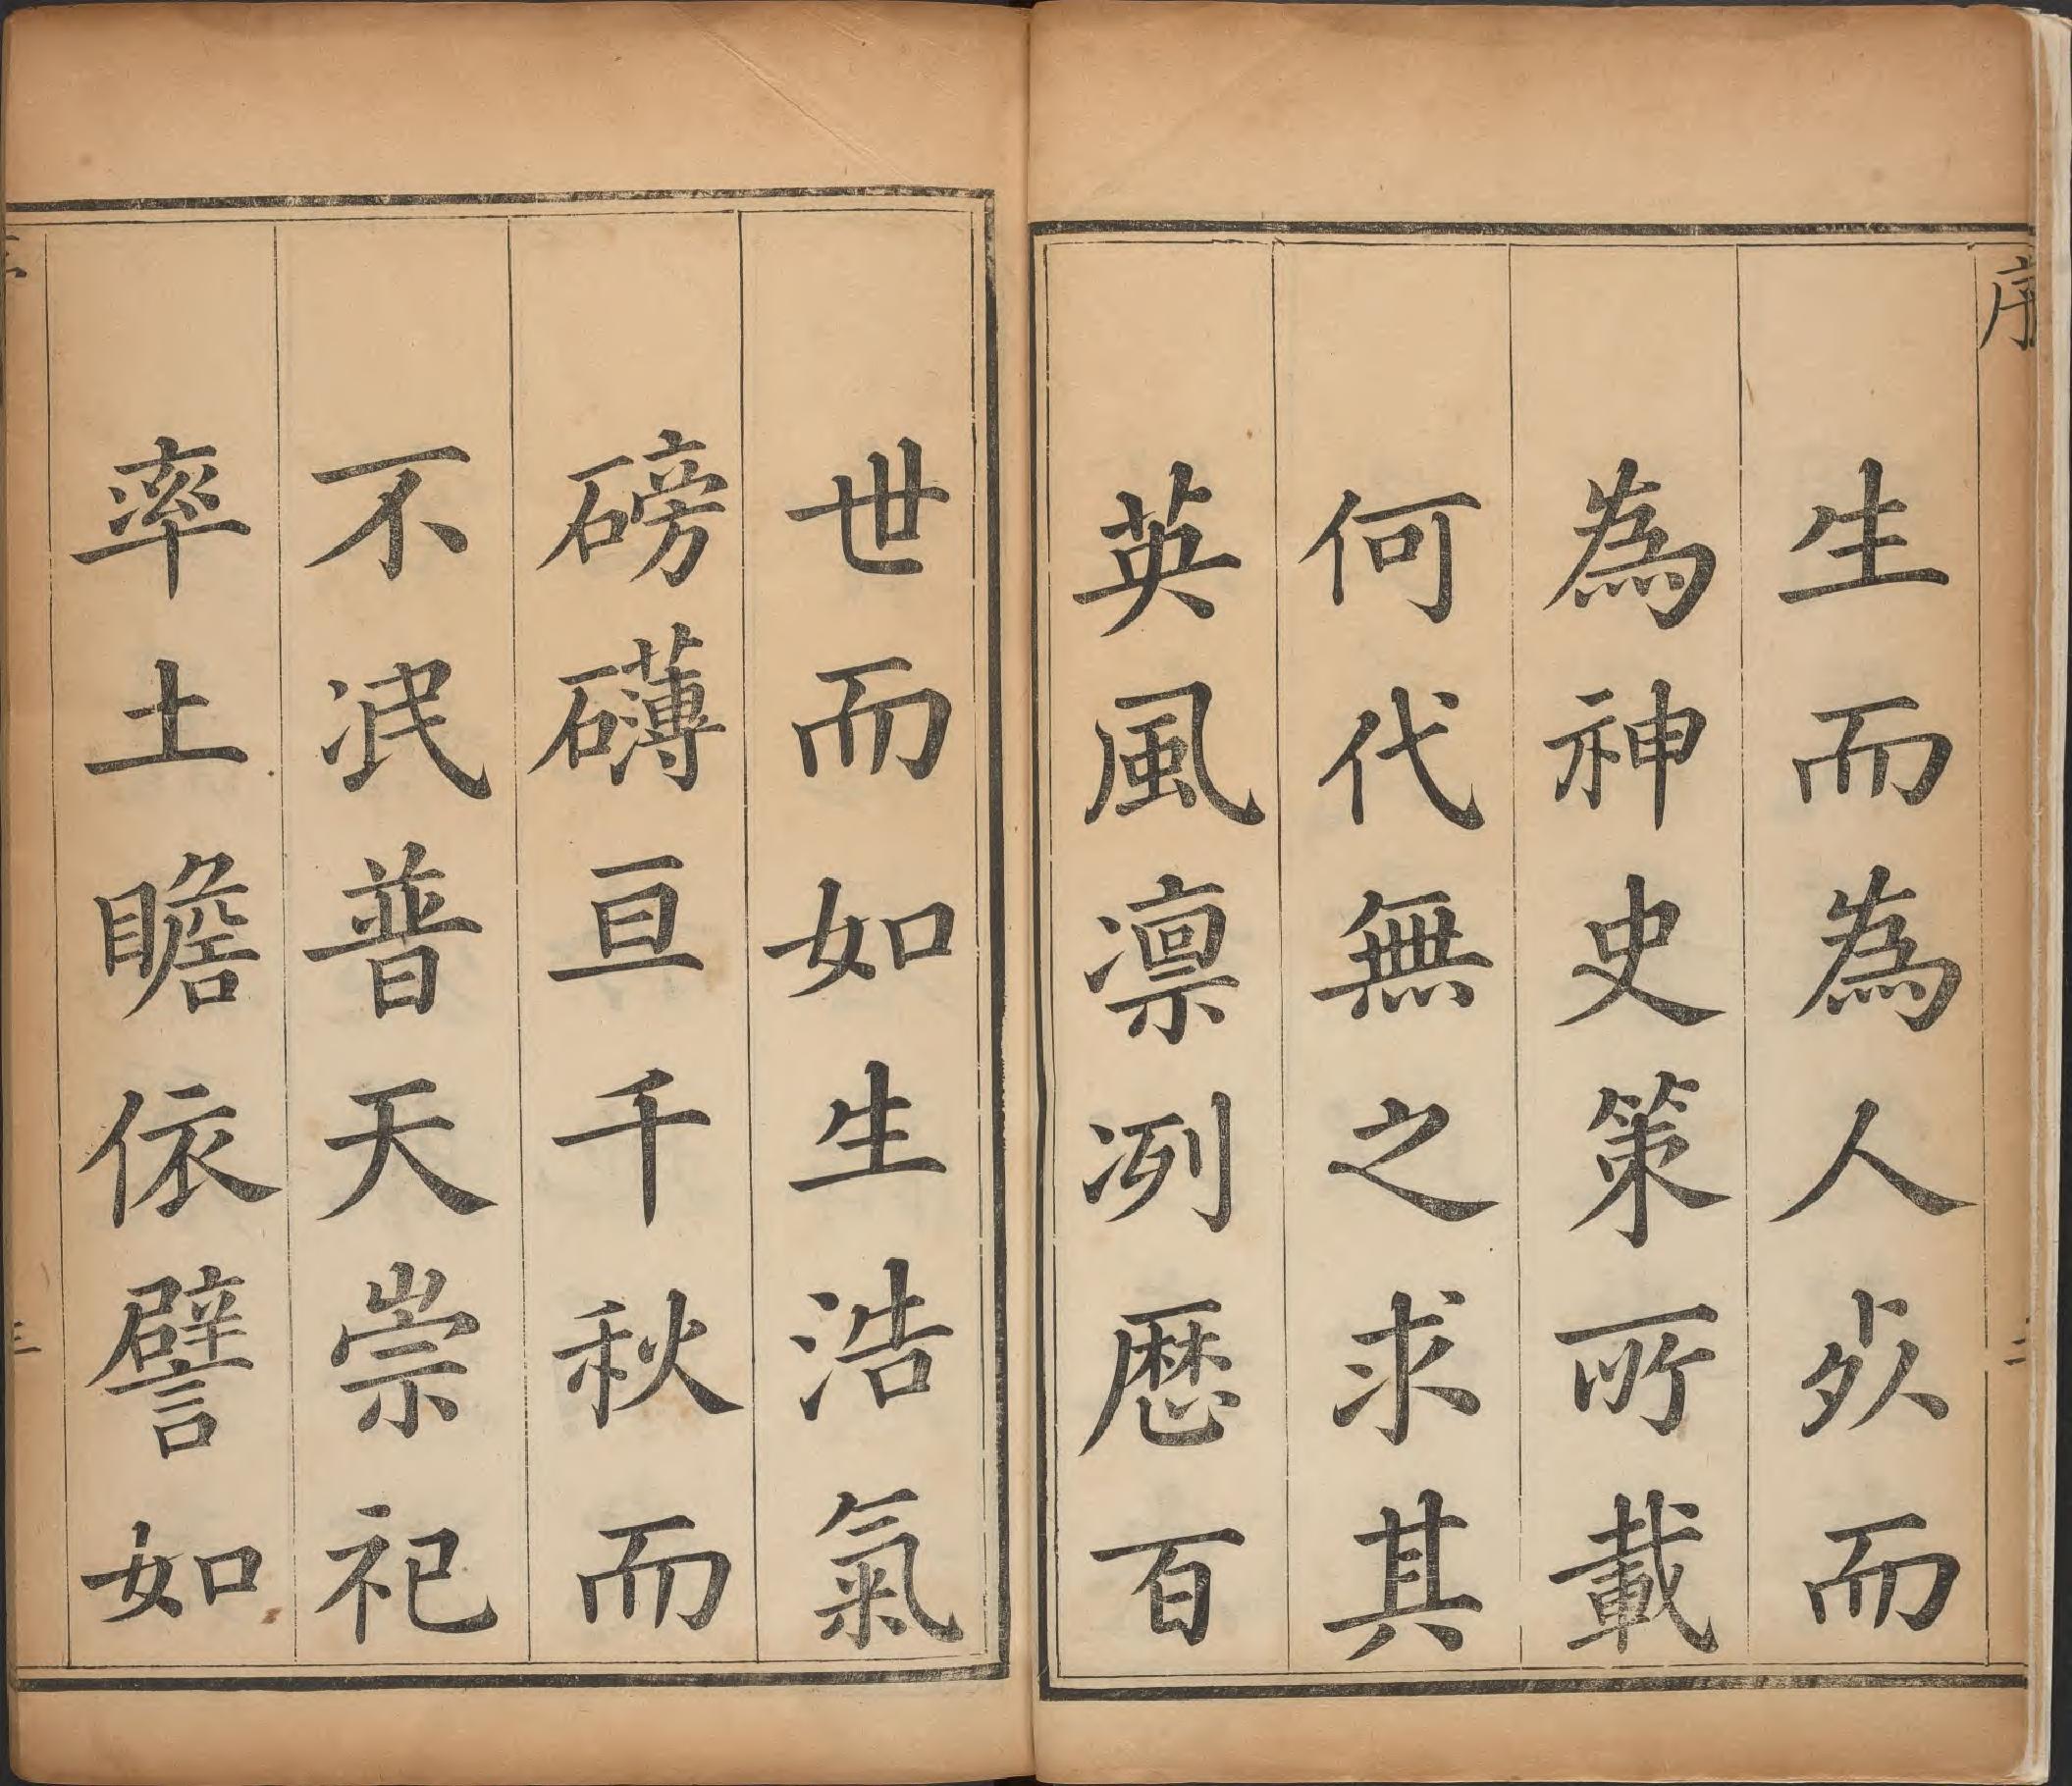 序
二
生而為人死而
為神史策所載
何代無之求其
英風凛冽歴百
世而如生浩氣
磅礴亘千秋而
不冺普天崇祀
率土瞻依譬如
三